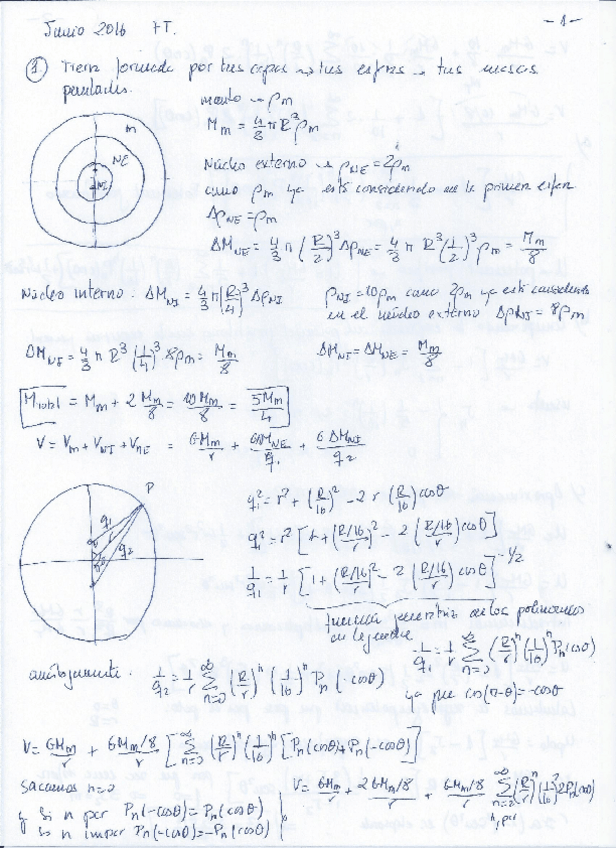 Junio 2016 1T. - 1 -
① Tierra formada por tres capas → tres esferas → tres masas
puntuales.
manto → ρm
Mm = 4/3 π R³ ρm
m
NE
NI
Núcleo externo → ρNE = 2ρm
como ρm ya está considerado en la primera esfera
ΔρNE = ρm
ΔMNE = 4/3 π (R/2)³ ΔρNE = 4/3 π R³ (1/2)³ ρm = Mm/8
Núcleo interno: ΔMNI = 4/3 π (R/4)³ ΔρNI ρNI = 10ρm como 2ρm ya está considerado
en el núcleo externo ΔρNI = 8ρm
ΔMNI = 4/3 π R³ (1/4)³ 8ρm = Mm/8 ΔMNI = ΔMNE = Mm/8
Mtotal = Mm + 2 Mm/8 = 10Mm/8 = 5Mm/4
V = Vm + VNI + VNE = GMm/r + GΔMNE/q1 + GΔMNI/q2
P
q1
r
q2
q1² = r² + (R/16)² - 2 r (R/16) cosθ
q1² = r² [1 + (R/16/r)² - 2 (R/16/r) cosθ]
1/q1 = 1/r [1 + (R/16/r)² - 2 (R/16/r) cosθ]^-1/2
función generatriz de los polinomios
de Legendre
1/q1 = 1/r ∑n=0^∞ (R/r)^n (1/16)^n Pn(cosθ)
análogamente: 1/q2 = 1/r ∑n=0^∞ (R/r)^n (1/16)^n Pn(-cosθ) ya que cos(π-θ) = -cosθ
V = GMm/r + GMm/8/r [∑n=0^∞ (R/r)^n (1/16)^n [Pn(cosθ) + Pn(-cosθ)]
sacamos n=0
y si n par Pn(-cosθ) = Pn(cosθ)
si n impar Pn(-cosθ) = -Pn(cosθ)
V = GMm/r + 2GMm/8/r + GMm/8/r ∑n=2^∞ (R/r)^n (1/16)^n 2Pn(cosθ)
n, par